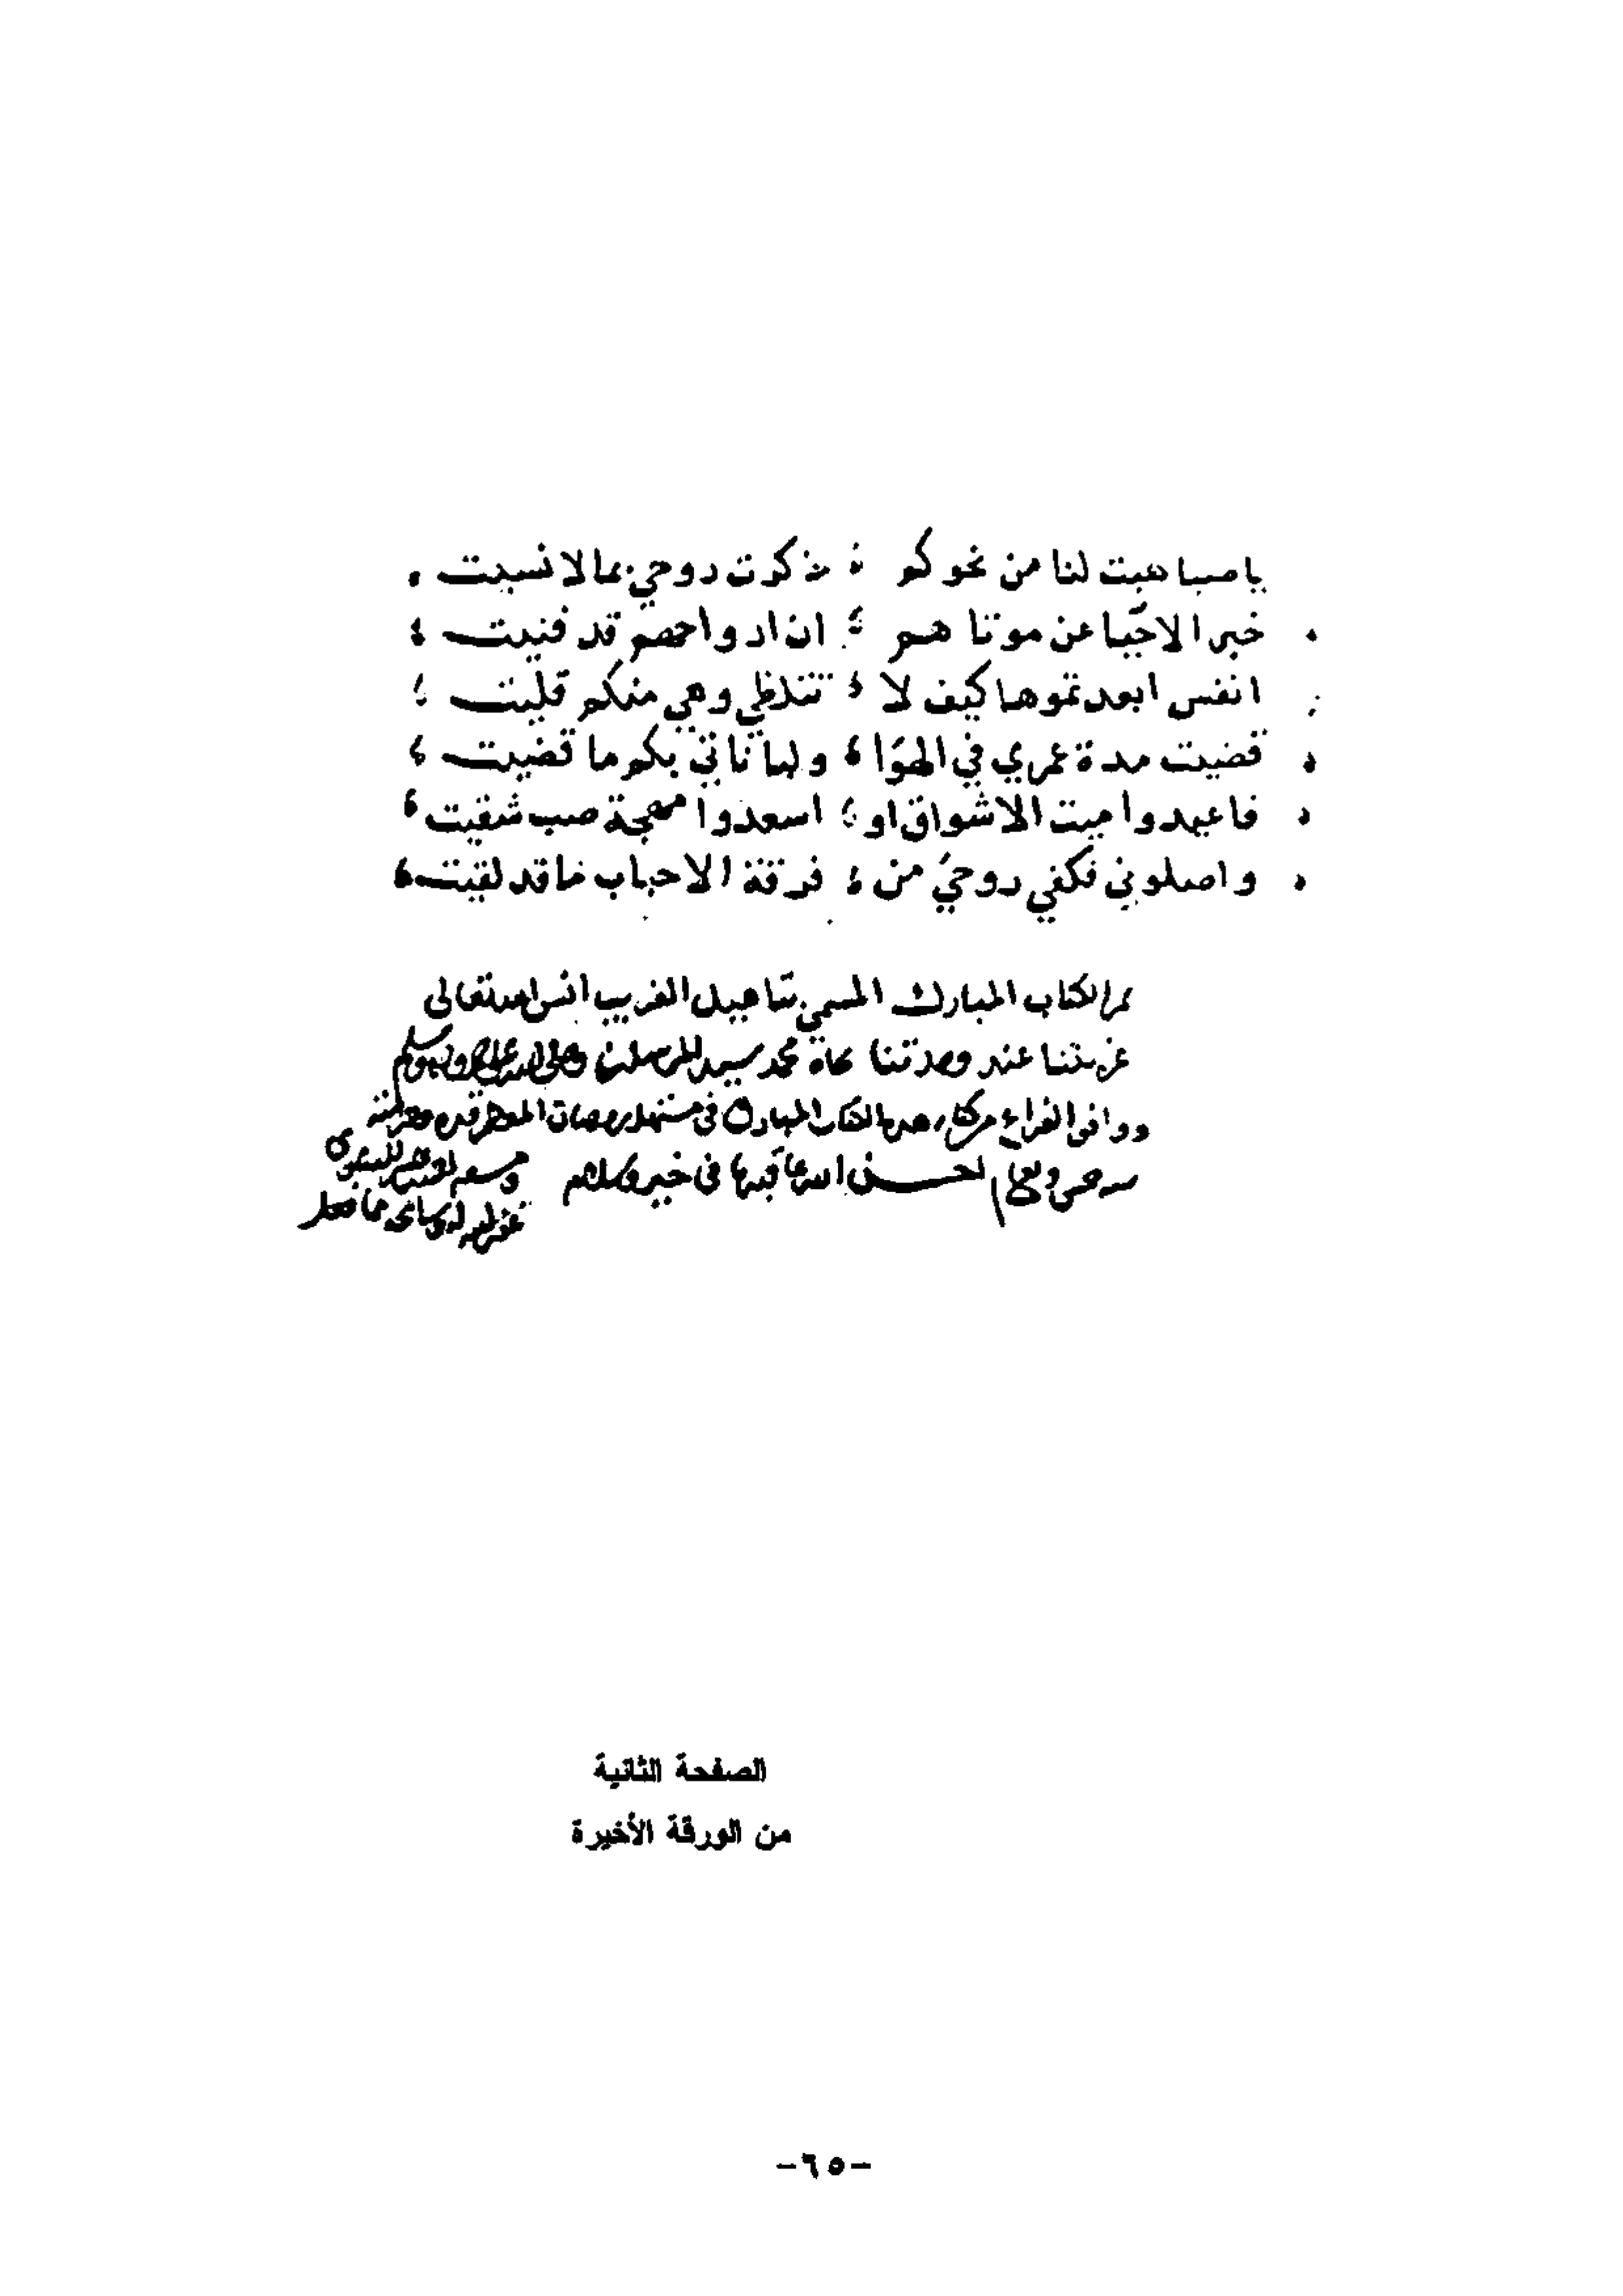 يا صبا هبت لنا من نحوكم ؛ ذكرت روحي بما لا نسيت
خبر الاحيا عن موتا هم ؛ ان ارواحهم قد فنيت ؛
انفس ابعدتموها كيف لا ؛ تتلظي وهي منكم قليت ؛
قضيت مدة عمري في الهوا ؛ ولباناتي بكم ما قضيت ؛
فاعيدوا ميت الاشواق او ؛ اسعدوا مهجة صب شقيت ؛
واصلوني فكفي روحي من ؛ فرقة الاحباب ما قد لقيت ؛
تم الكتاب المبارك المسمي بتاهيل الغريب انس الله تعالى
غربتنا عند وحدتنا بجاه محمد سيد المرسلين
ووافق الفراغ من هذا الكتاب المبارك في مستهل رمضان المعظم قدره
احسن الله عاقبتها في خير
الصفحة الثانية
من الورقة الأخيرة
-٦٥-